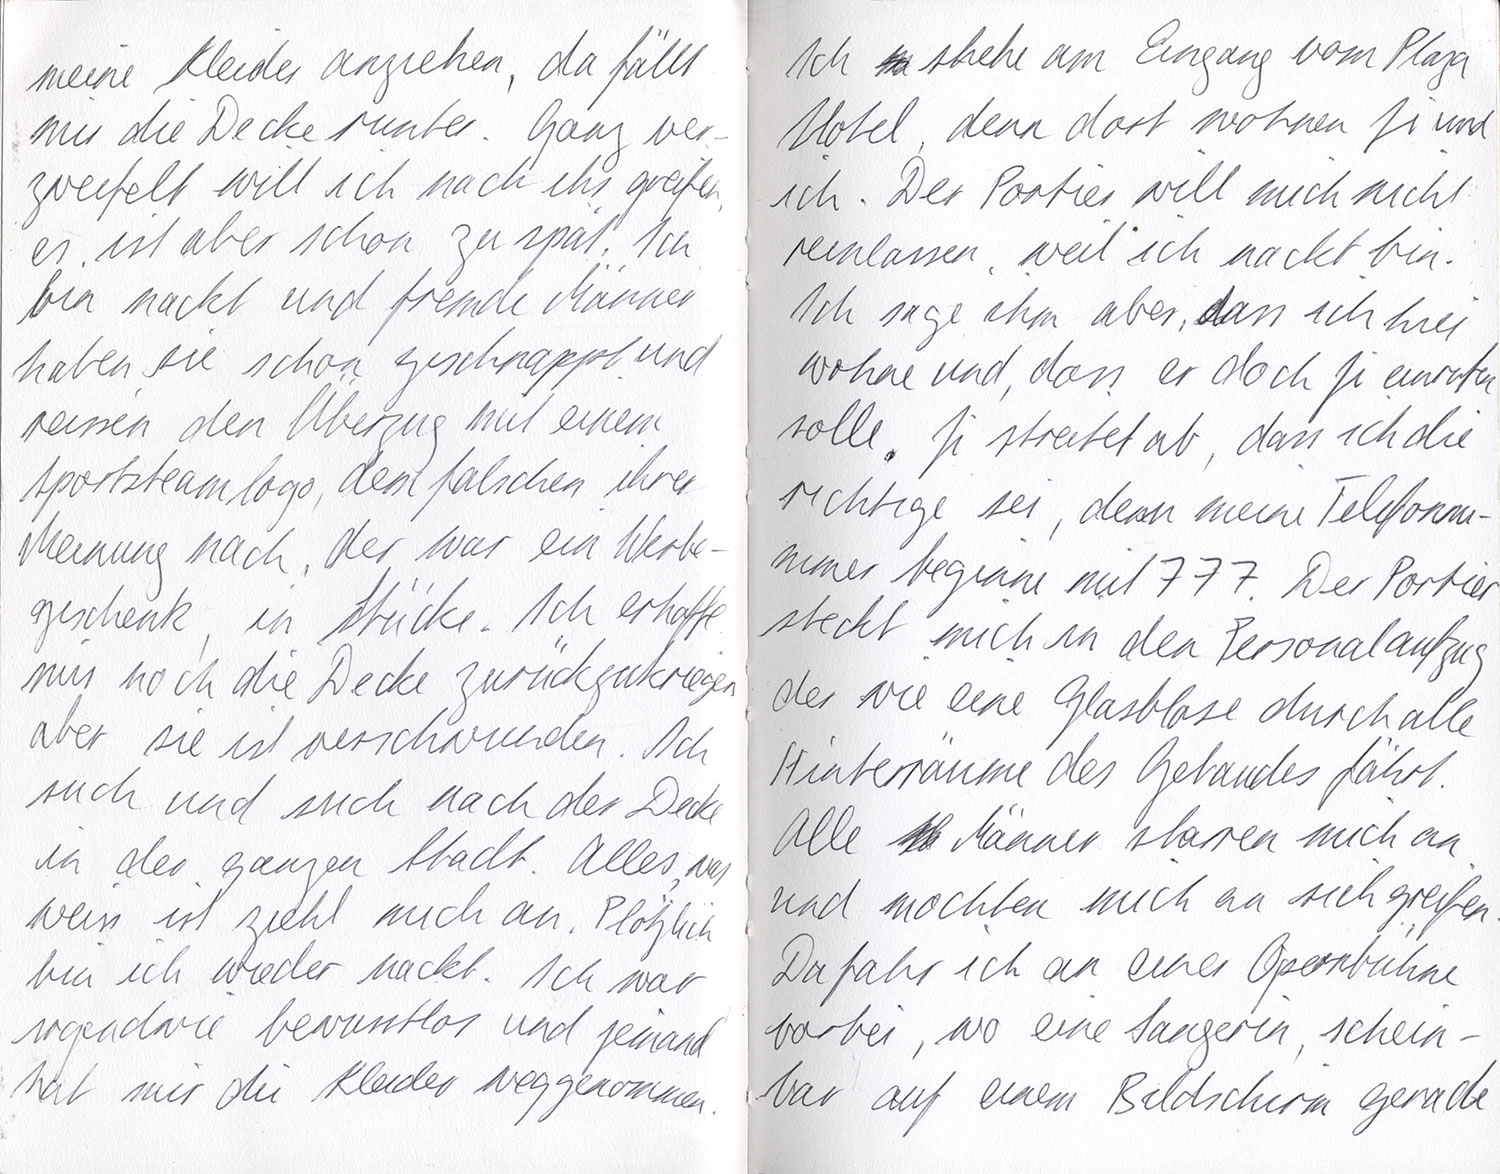 meine Kleider anziehen, da fällt
mir die Decke runter. Ganz ver-
zweifelt will ich nach ihr greifen,
es ist aber schon zu spät. Ich
bin nackt und fremde Männer
haben sie schon geschnappt und
reissen den Überzug mit einem
Sportsteamlogo, dem falschen ihrer
Meinung nach, der war ein Werbe-
geschenk, in Stücke. Ich erhoffe
mir noch die Decke zurückzukriegen
aber sie ist verschwunden. Ich
such und such nach der Decke
in der ganzen Stadt. Alles, was
weiss ist zieht mich an. Plötzlich
bin ich wieder nackt. Ich war
irgendwie bewusstlos und jemand
hat mir die Kleider weggenommen.
Ich stehe am Eingang vom Plaza
Hotel, denn dort wohnen Ji und
ich. Der Portier will mich nicht
reinlassen, weil ich nackt bin.
Ich sage ihm aber, dass ich hier
wohne und, dass er doch Ji anrufen
solle. Ji streitet ab, dass ich die
richtige sei, denn meine Telefonnu-
mmer beginne mit 777. Der Portier
steckt mich in den Personalaufzug
der wie eine Glasblase durch alle
Hinterräume des Gebaudes fährt.
Alle Männer starren mich an
und mochten mich an sich greifen.
Da fahr ich an einer Opernbühne
vorbei, wo eine Sangerin, schein-
bar auf einem Bildschirm gerade